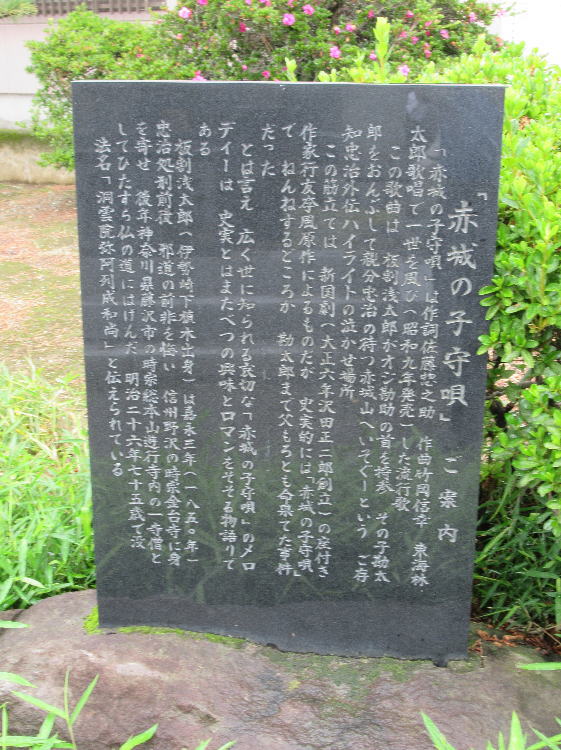 「赤城の子守唄」 ご案内
「赤城の子守唄」は作詞佐藤忠之助 作曲竹岡信幸 東海林
太郎歌唱で一世を風び(昭和九年発売)した流行歌
この歌曲は 板割浅太郎がオジ勘助の首を持参 その子勘太
郎をおんぶして親分忠治の待つ赤城山へいそぐーという ご存
知忠治外伝ハイライトの泣かせ場所
この筋立ては 新国劇(大正六年沢田正二郎創立)の座付き
作家行友李風原作によるものだが 史実的には「赤城の子守唄」
で ねんねするどころか 勘太郎まで父もろとも命果てた事件
だった
とは言え 広く世に知られる哀切な「赤城の子守唄」のメロ
デイーは 史実とはまたべつの興味とロマンをそそる物語りで
ある
板割浅太郎(伊勢崎下植木出身)は嘉永三年(一八五〇年)
忠治処刑前後 邪道の前非を悔い 信州野沢の時宗金台寺に身
を寄せ 後年神奈川県藤沢市の時宗総本山遊行寺内の一寺僧と
してひたすら仏の道にはげんだ 明治二十六年七十五歳で没
法名「洞雲院弥阿列成和尚」と伝えられている